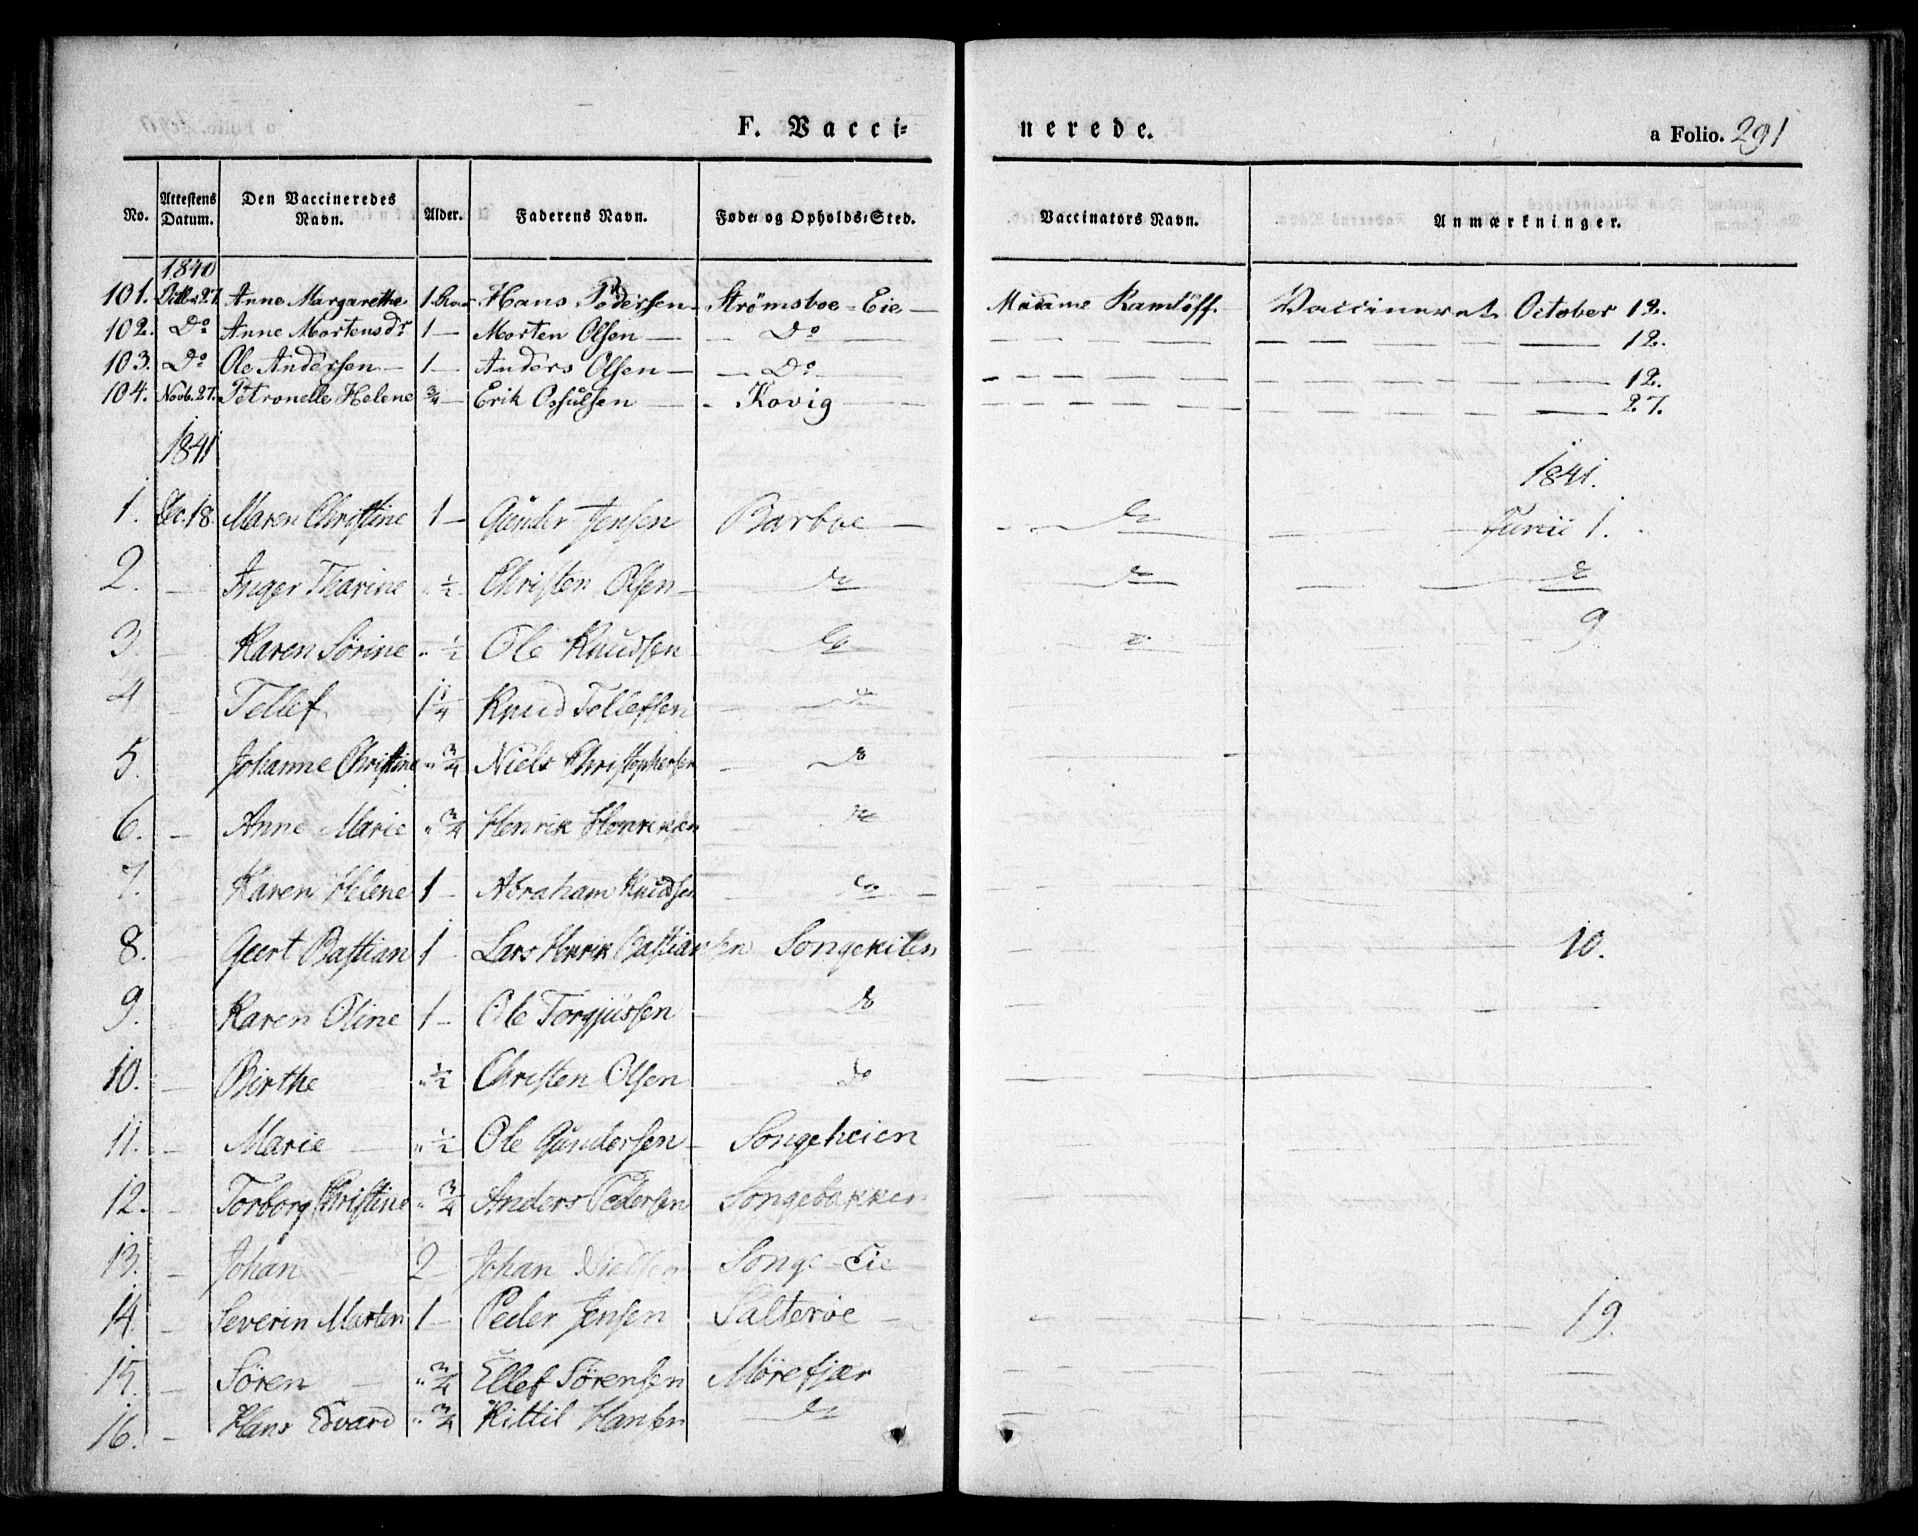 F. Vacci=nerede. a Folio. 291
No. Attestens Datum. Den Vaccineredes Navn. Alder. Faderens Navn. Føde- og Opholds-Sted. Vaccinators Navn. Anmærkninger.
1840
101. 27. Anne Margarethe 1 Hans Pedersen Strømsboe-Eie Madame Vaccineret October 12.
102. Do Anne Mortensdr 1 — Morten Olsen — Do 12.
103. Do Ole Andersen 1 — Anders Olsen — Do 12.
104. Novb. 27. Petronelle Helene ¾ — Erik Osfulsen — Kovig 27.
1841 1841.
1. Dec. 18. Maren Christine 1 — Gunder Jensen Barboe — do Junii 1.
2. — Inger Tharine " ½ Christen Olsen — do do do
3. — Karen Sørine " ½ Ole Knudsen do do 9.
4 — Tellef 1¼ Knud Tellefsen do
5. Johanne Christine " ¾ Niels Christophersen do
6. — Anne Marie " ¾ Henrik Henriksen do
7. — Karen Helene 1 — Abraham Knudsen do
8. — Geert Bastian 1 Lars Henrik Bastiansen Songekilen 10.
9. Karen Oline 1 — Ole Torgjussen do
10. — Birthe " ½ Christen Olsen do
11. — Marie " ½ Ole Gundersen — Songeheien
12. — Torborg Christine " ¾ Anders Pedersen Songebakken
13. — Johan 2 — Johan Nielsen Songe-Eie
14. — Severin Marten 1 — Peder Jensen Salterøe — 19.
15. — Søren " ¾ Ellef Sørensen Mørefjær
16. — Hans Edvard " ¾ Kittil Hansen do